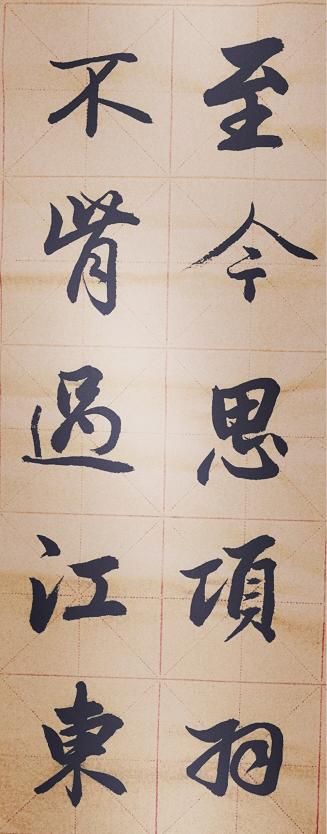 至今思項羽
不肯過江東